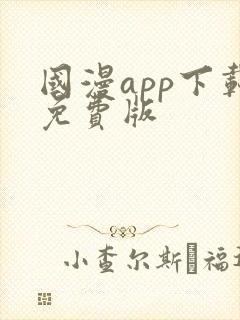 國漫app下載
免費版
小查尔斯�福